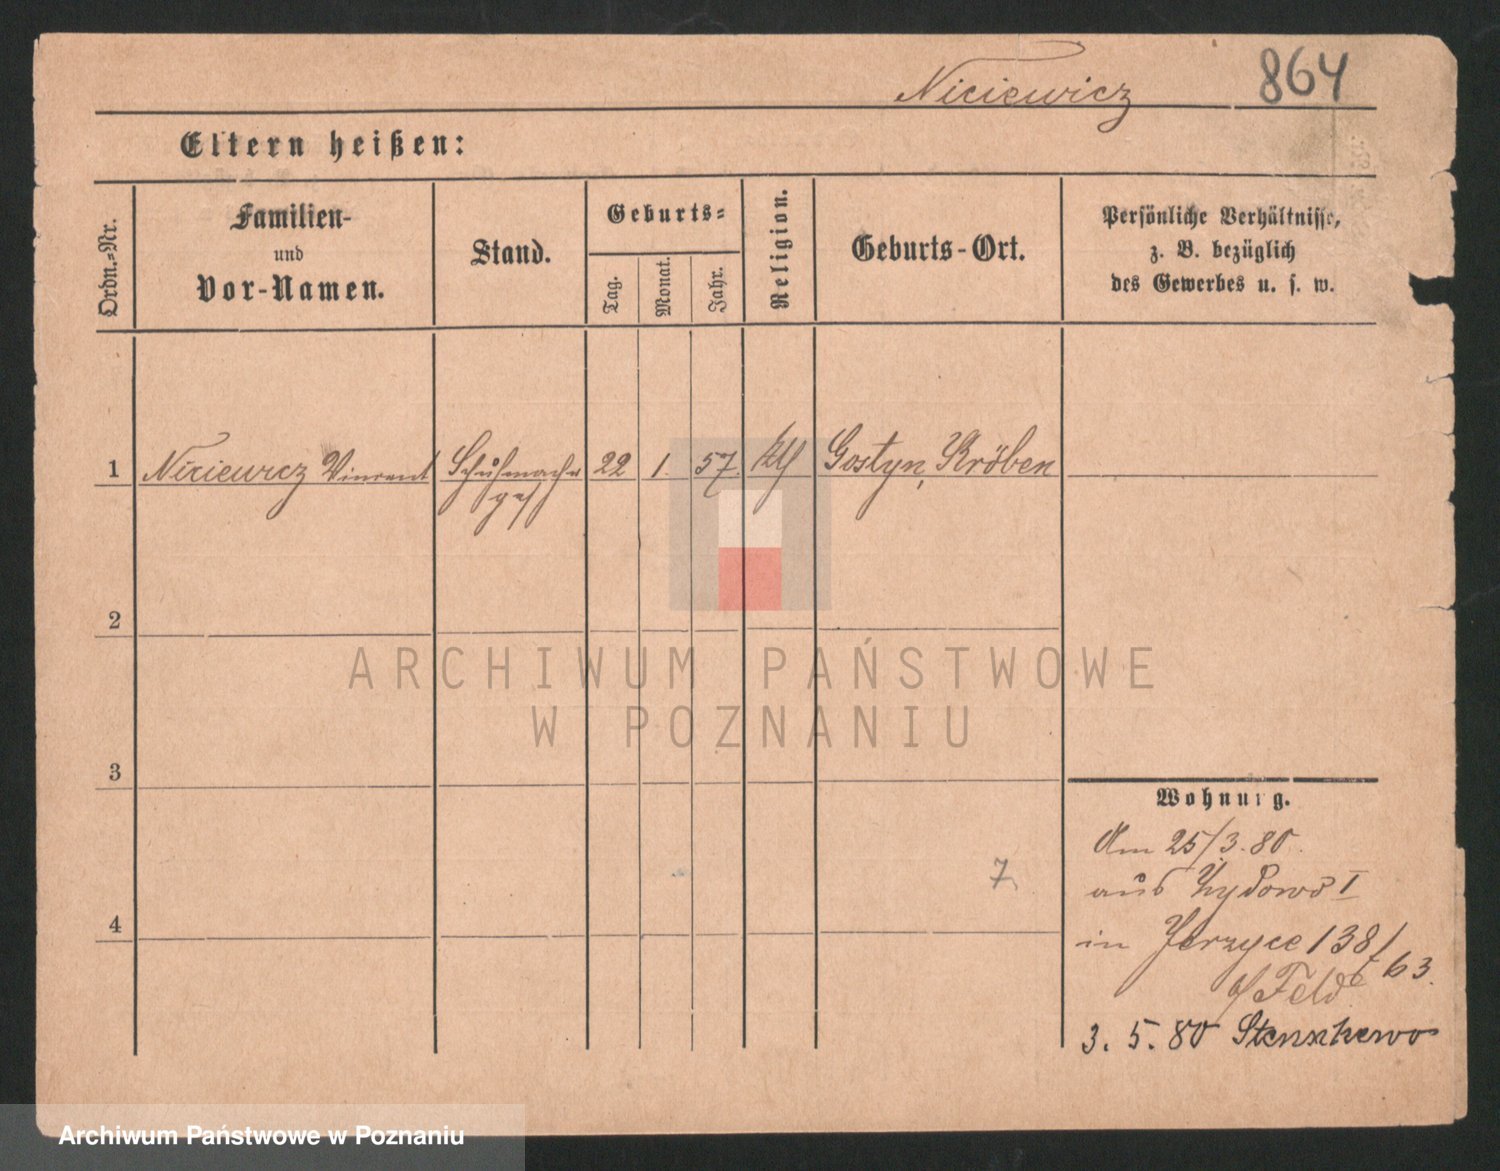 Niciewicz 864
Eltern heißen:
Ordn.-Nr.
Familien-
und
Vor-Namen.
Stand.
Geburts-
Tag.
Monat.
Jahr.
Religion.
Geburts-Ort.
Persönliche Verhältnisse,
z. B. bezüglich
des Gewerbes u. s. w.
1 Niciewicz Vincent Schuhmacher 22 1. 57. Gostyn, Kröben
2
ARCHIWUM PAŃSTWOWE
W POZNANIU
3
Wohnung.
Am 25/3.80.
7
aus Żydowo I
4
in Jerzyce 138/63.
Feld
3. 5. 80 Stenschewo
Archiwum Państwowe w Poznaniu